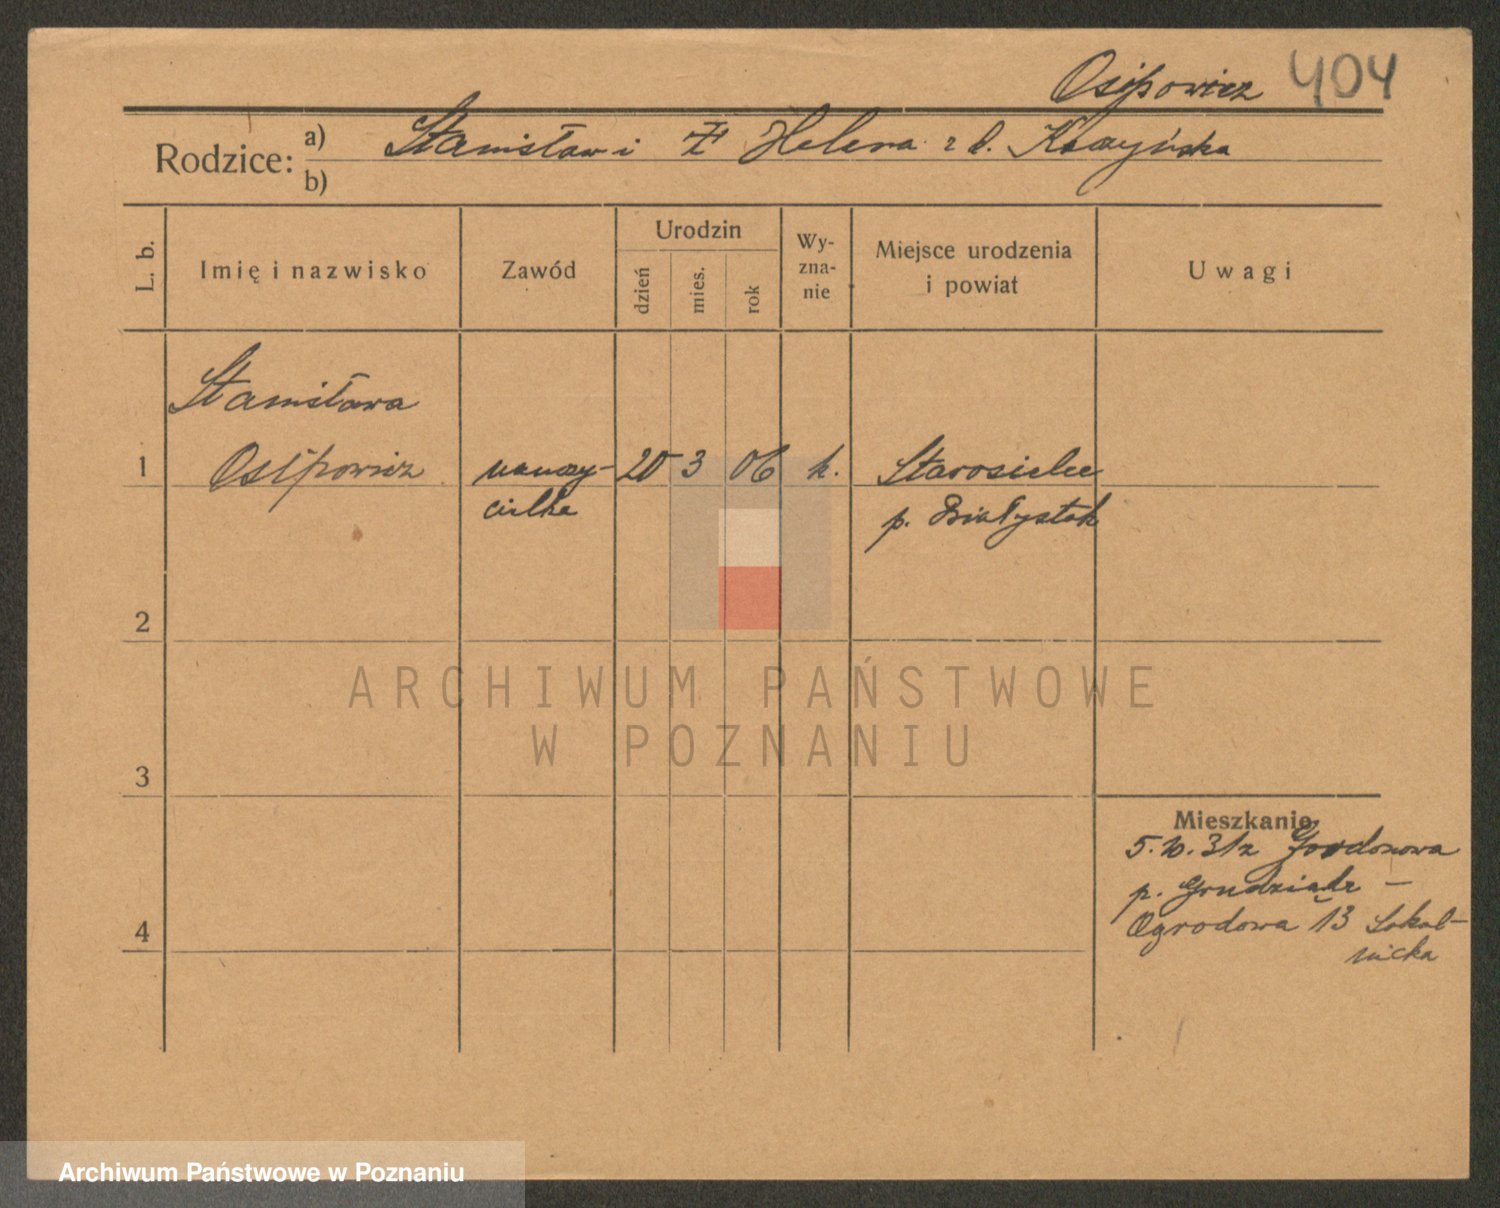 Osipowicz 404
Rodzice: a) Stanisław i Helena z d.
b)
L. b.
Imię i nazwisko
Zawód
Urodzin
dzień
mies.
rok
Wy-
zna-
nie
Miejsce urodzenia
i powiat
Uwagi
Stanisława
1 Osipowicz nauczy- 20 3 06 k. Starosielce
cielka p. Białystok
2
3
4
Mieszkanie
5.10.31 z Gordonowa
p. Grudziądz –
Ogrodowa 13 Sokol-
nicka
ARCHIWUM PAŃSTWOWE
W POZNANIU
Archiwum Państwowe w Poznaniu